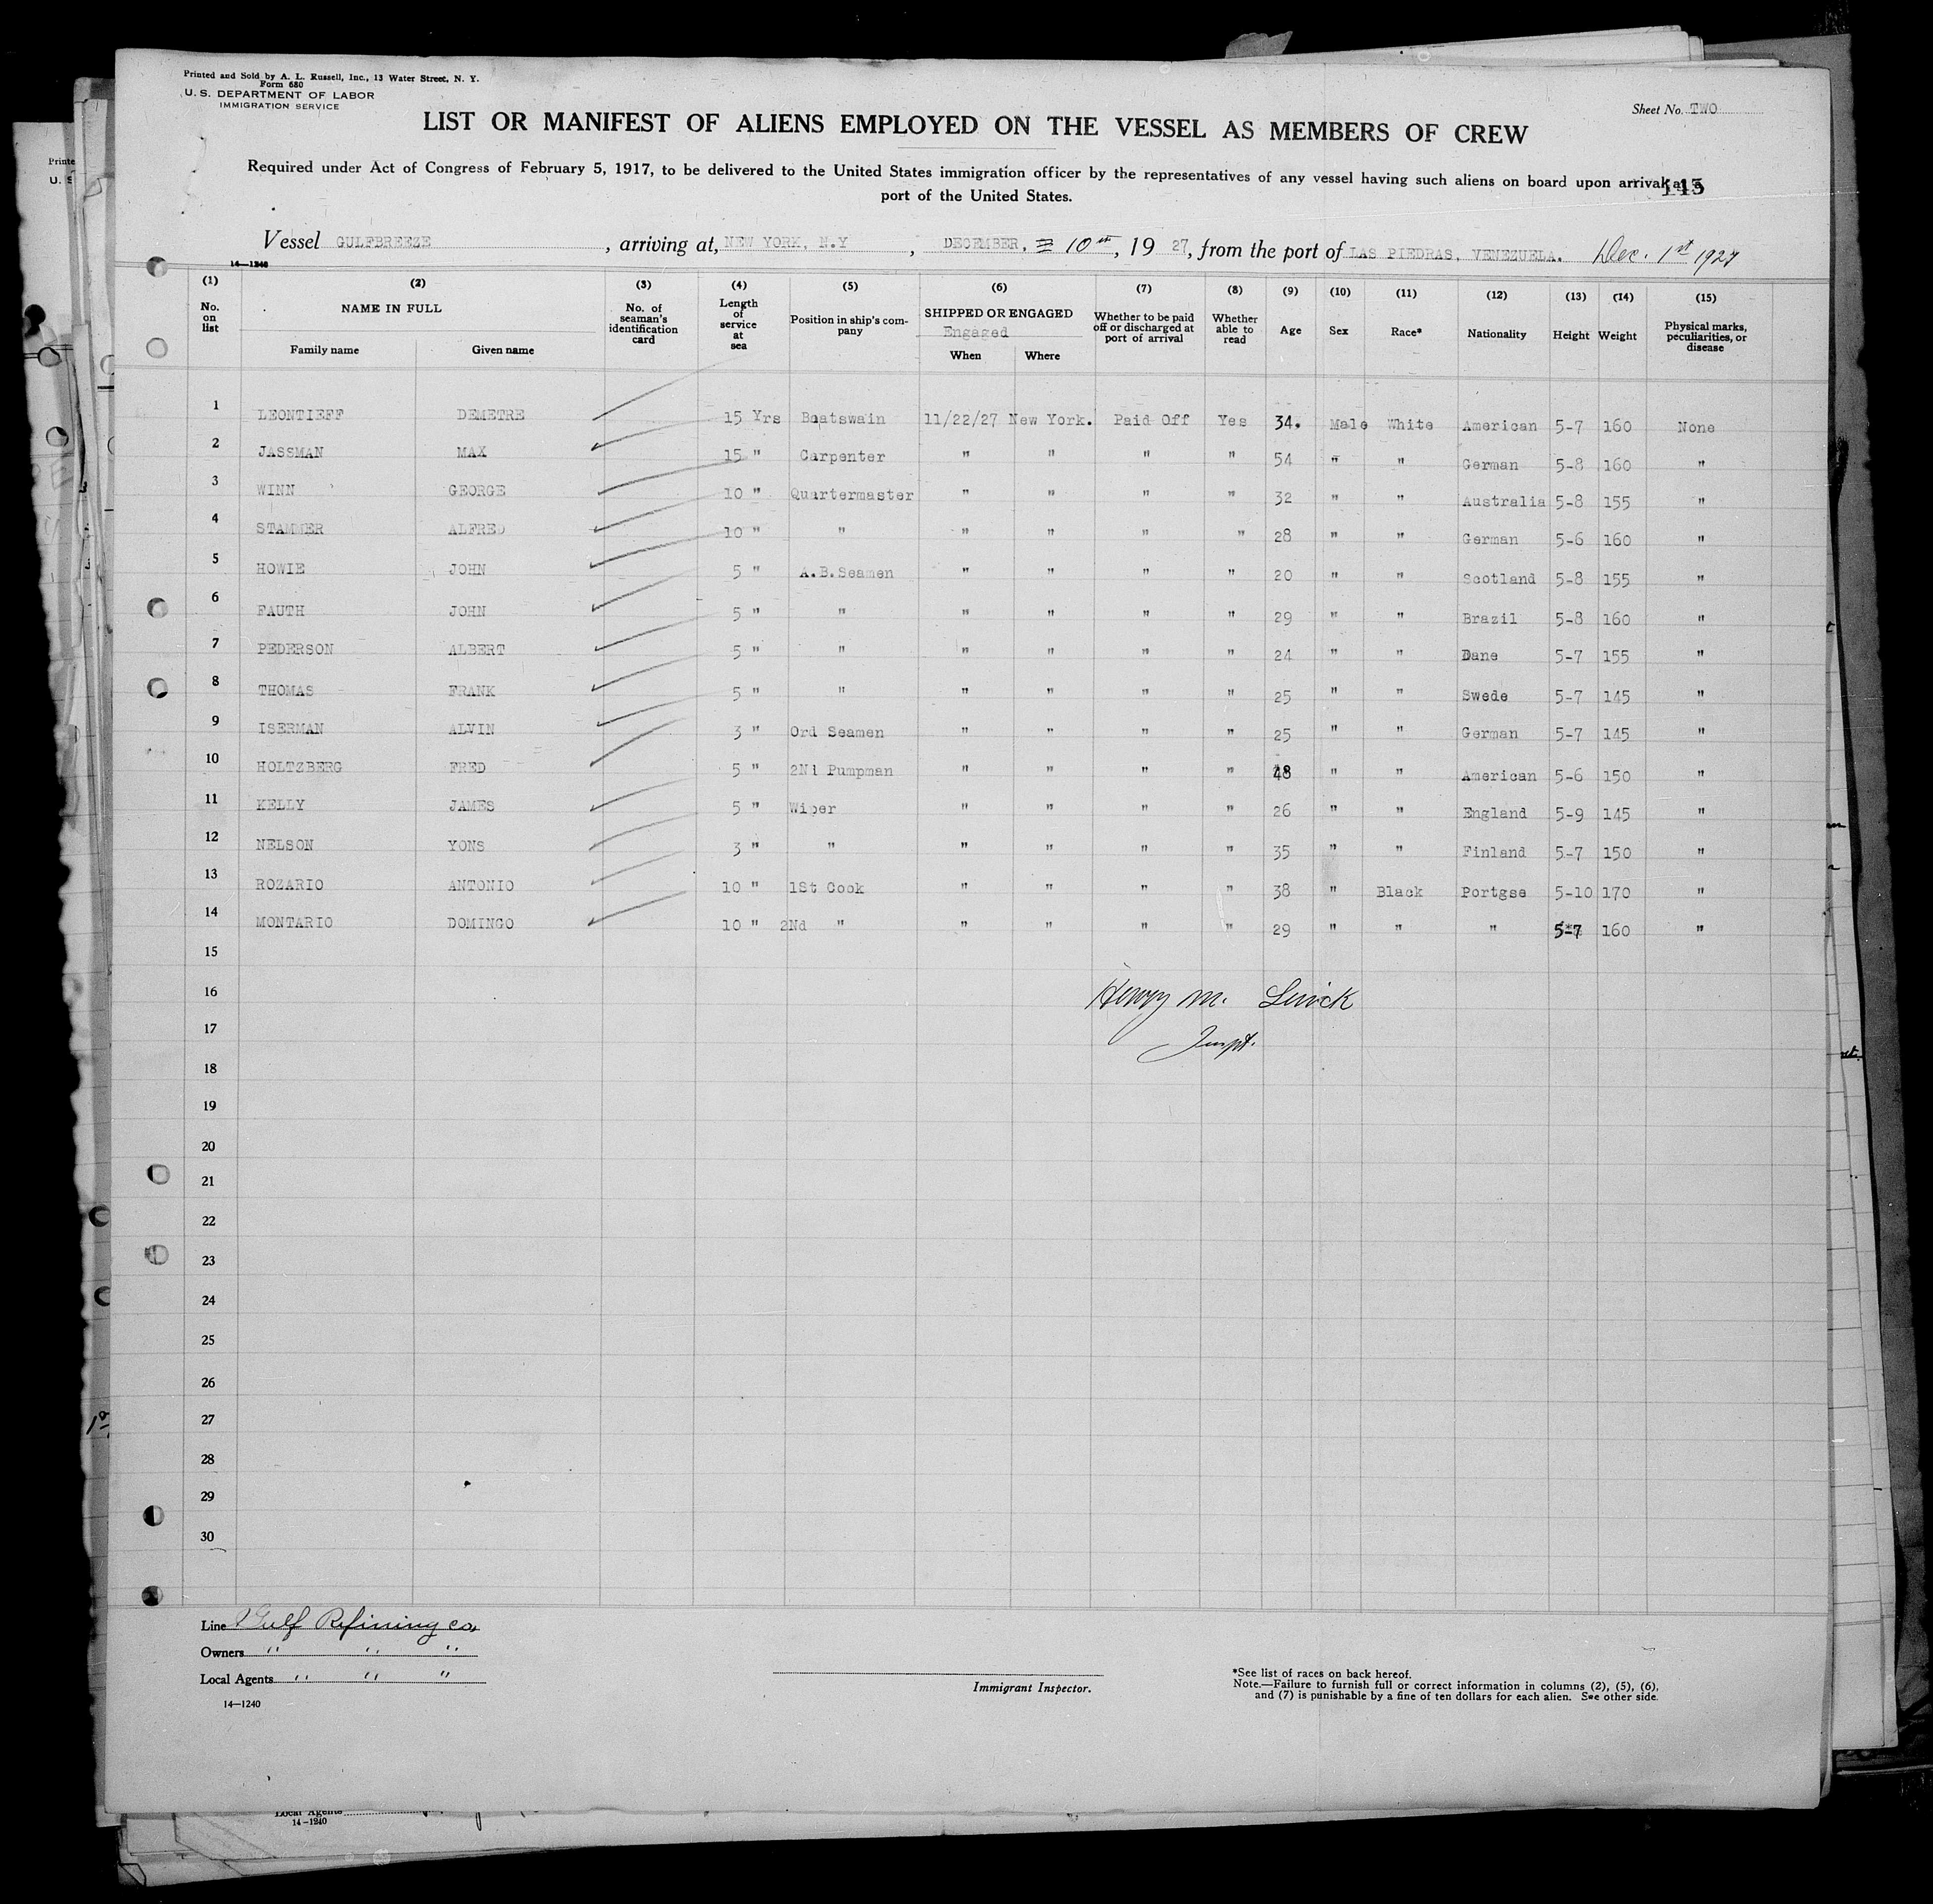 Printed and Sold by A. L. Russell, Inc., 13 Water Street, N. Y.
Form 680
U. S. DEPARTMENT OF LABOR
IMMIGRATION SERVICE
Sheet No. TWO
LIST OR MANIFEST OF ALIENS EMPLOYED ON THE VESSEL AS MEMBERS OF CREW
Required under Act of Congress of February 5, 1917, to be delivered to the United States immigration officer by the representatives of any vessel having such aliens on board upon arrival at a
port of the United States.
Vessel GULFBREEZE, arriving at, NEW YORK, N.Y, DECEMBER, 10th, 1927, from the port of LAS PIEDRAS, VENEZUELA. Dec. 1st 1927
14—1240
(1) (2) (3) (4) (5) (6) (7) (8) (9) (10) (11) (12) (13) (14) (15)
No. on list NAME IN FULL Family name Given name No. of seaman's identification card Length of service at sea Position in ship's company SHIPPED OR ENGAGED Engaged When Where Whether to be paid off or discharged at port of arrival Whether able to read Age Sex Race* Nationality Height Weight Physical marks, peculiarities, or disease
1 LEONTIEFF DEMETRE 15 Yrs Boatswain 11/22/27 New York. Paid Off Yes 34. Male White American 5-7 160 None
2 JASSMAN MAX 15 " Carpenter " " " " 54 " " German 5-8 160 "
3 WINN GEORGE 10 " Quartermaster " " " " 32 " " Australia 5-8 155 "
4 STAMMER ALFRED 10 " " " " " " 28 " " German 5-6 160 "
5 HOWIE JOHN 5 " A.B.Seamen " " " " 20 " " Scotland 5-8 155 "
6 FAUTH JOHN 5 " " " " " " 29 " " Brazil 5-8 160 "
7 PEDERSON ALBERT 5 " " " " " " 24 " " Dane 5-7 155 "
8 THOMAS FRANK 5 " " " " " " 25 " " Swede 5-7 145 "
9 ISERMAN ALVIN 3 " Ord Seamen " " " " 25 " " German 5-7 145 "
10 HOLTZBERG FRED 5 " 2Nd Pumpman " " " " 48 " " American 5-6 150 "
11 KELLY JAMES 5 " Wiper " " " " 26 " " England 5-9 145 "
12 NELSON YONS 3 " " " " " " 35 " " Finland 5-7 150 "
13 ROZARIO ANTONIO 10 " 1St Cook " " " " 38 " Black Portgse 5-10 170 "
14 MONTARIO DOMINGO 10 " 2Nd " " " " " 29 " " " 5-7 160 "
15
16 Henry M.
17
18
19
20
21
22
23
24
25
26
27
28
29
30
Line Gulf Refining Co.
Owners " " "
Local Agents " " "
14—1240
Immigrant Inspector.
*See list of races on back hereof.
Note.—Failure to furnish full or correct information in columns (2), (5), (6),
and (7) is punishable by a fine of ten dollars for each alien. See other side.
Local Agents
14—1240